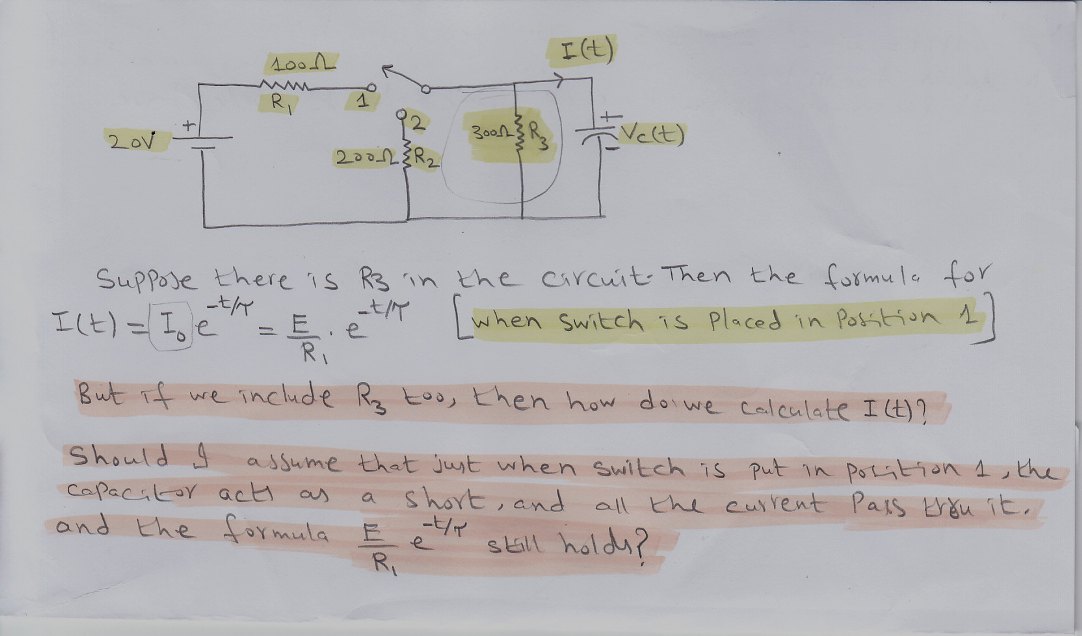 I(t)
100Ω
R1
1
2
20V
+
200Ω R2
300Ω R3
+
Vc(t)
-
Suppose there is R3 in the circuit. Then the formula for
I(t) = I0 e^-t/τ = E/R1 . e^-t/τ [when switch is placed in Position 1]
But if we include R3 too, then how do we calculate I(t)?
Should I assume that just when switch is put in position 1, the
capacitor acts as a short, and all the current Pass trou it.
and the formula E/R1 e^-t/τ still holds?